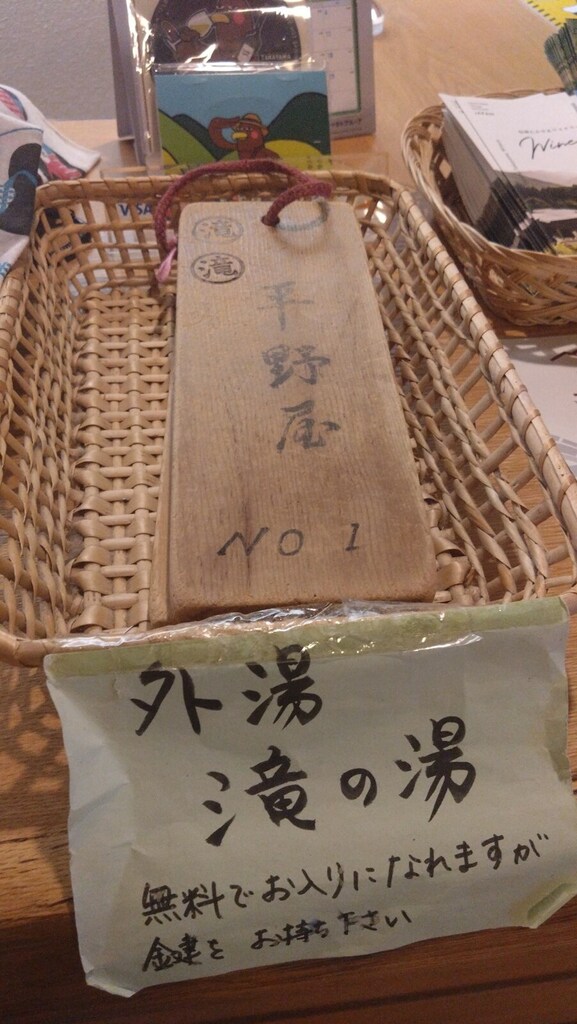 VISA
Wine
滝
滝
平野屋
NO 1
外湯
滝の湯
無料でお入りになれますが
金建をお持ち下さい